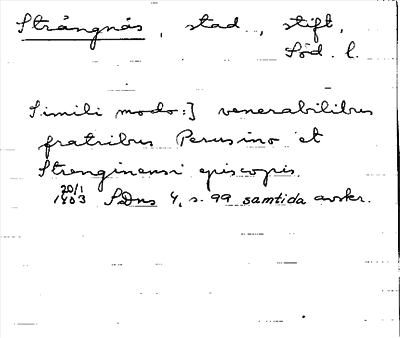 Strängnäs, stad, stift,
Söd. l.
Simili modo:] venerabilibus
fratribus Perusino et
Strenginensi episcopis.
20/1
1403 SDns 4, s. 99 samtida avskr.